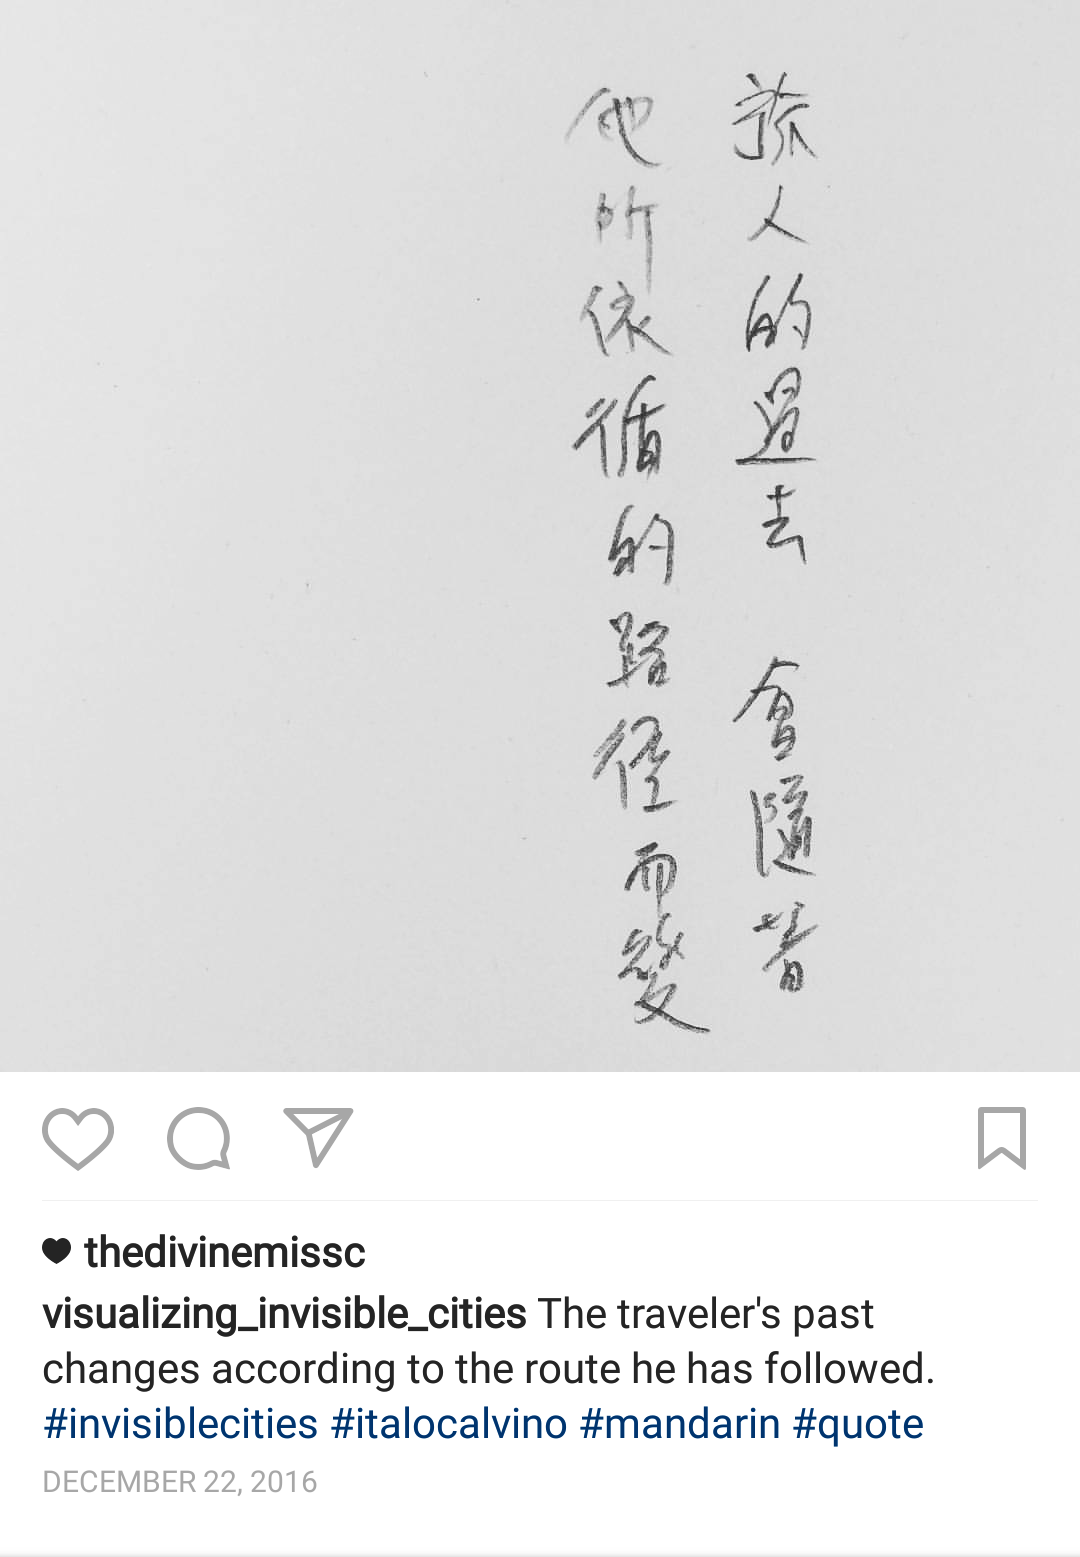 旅人的過去 會隨着
他所依循的路徑而變
thedivinemissc
visualizing_invisible_cities The traveler's past
changes according to the route he has followed.
#invisiblecities #italocalvino #mandarin #quote
DECEMBER 22, 2016